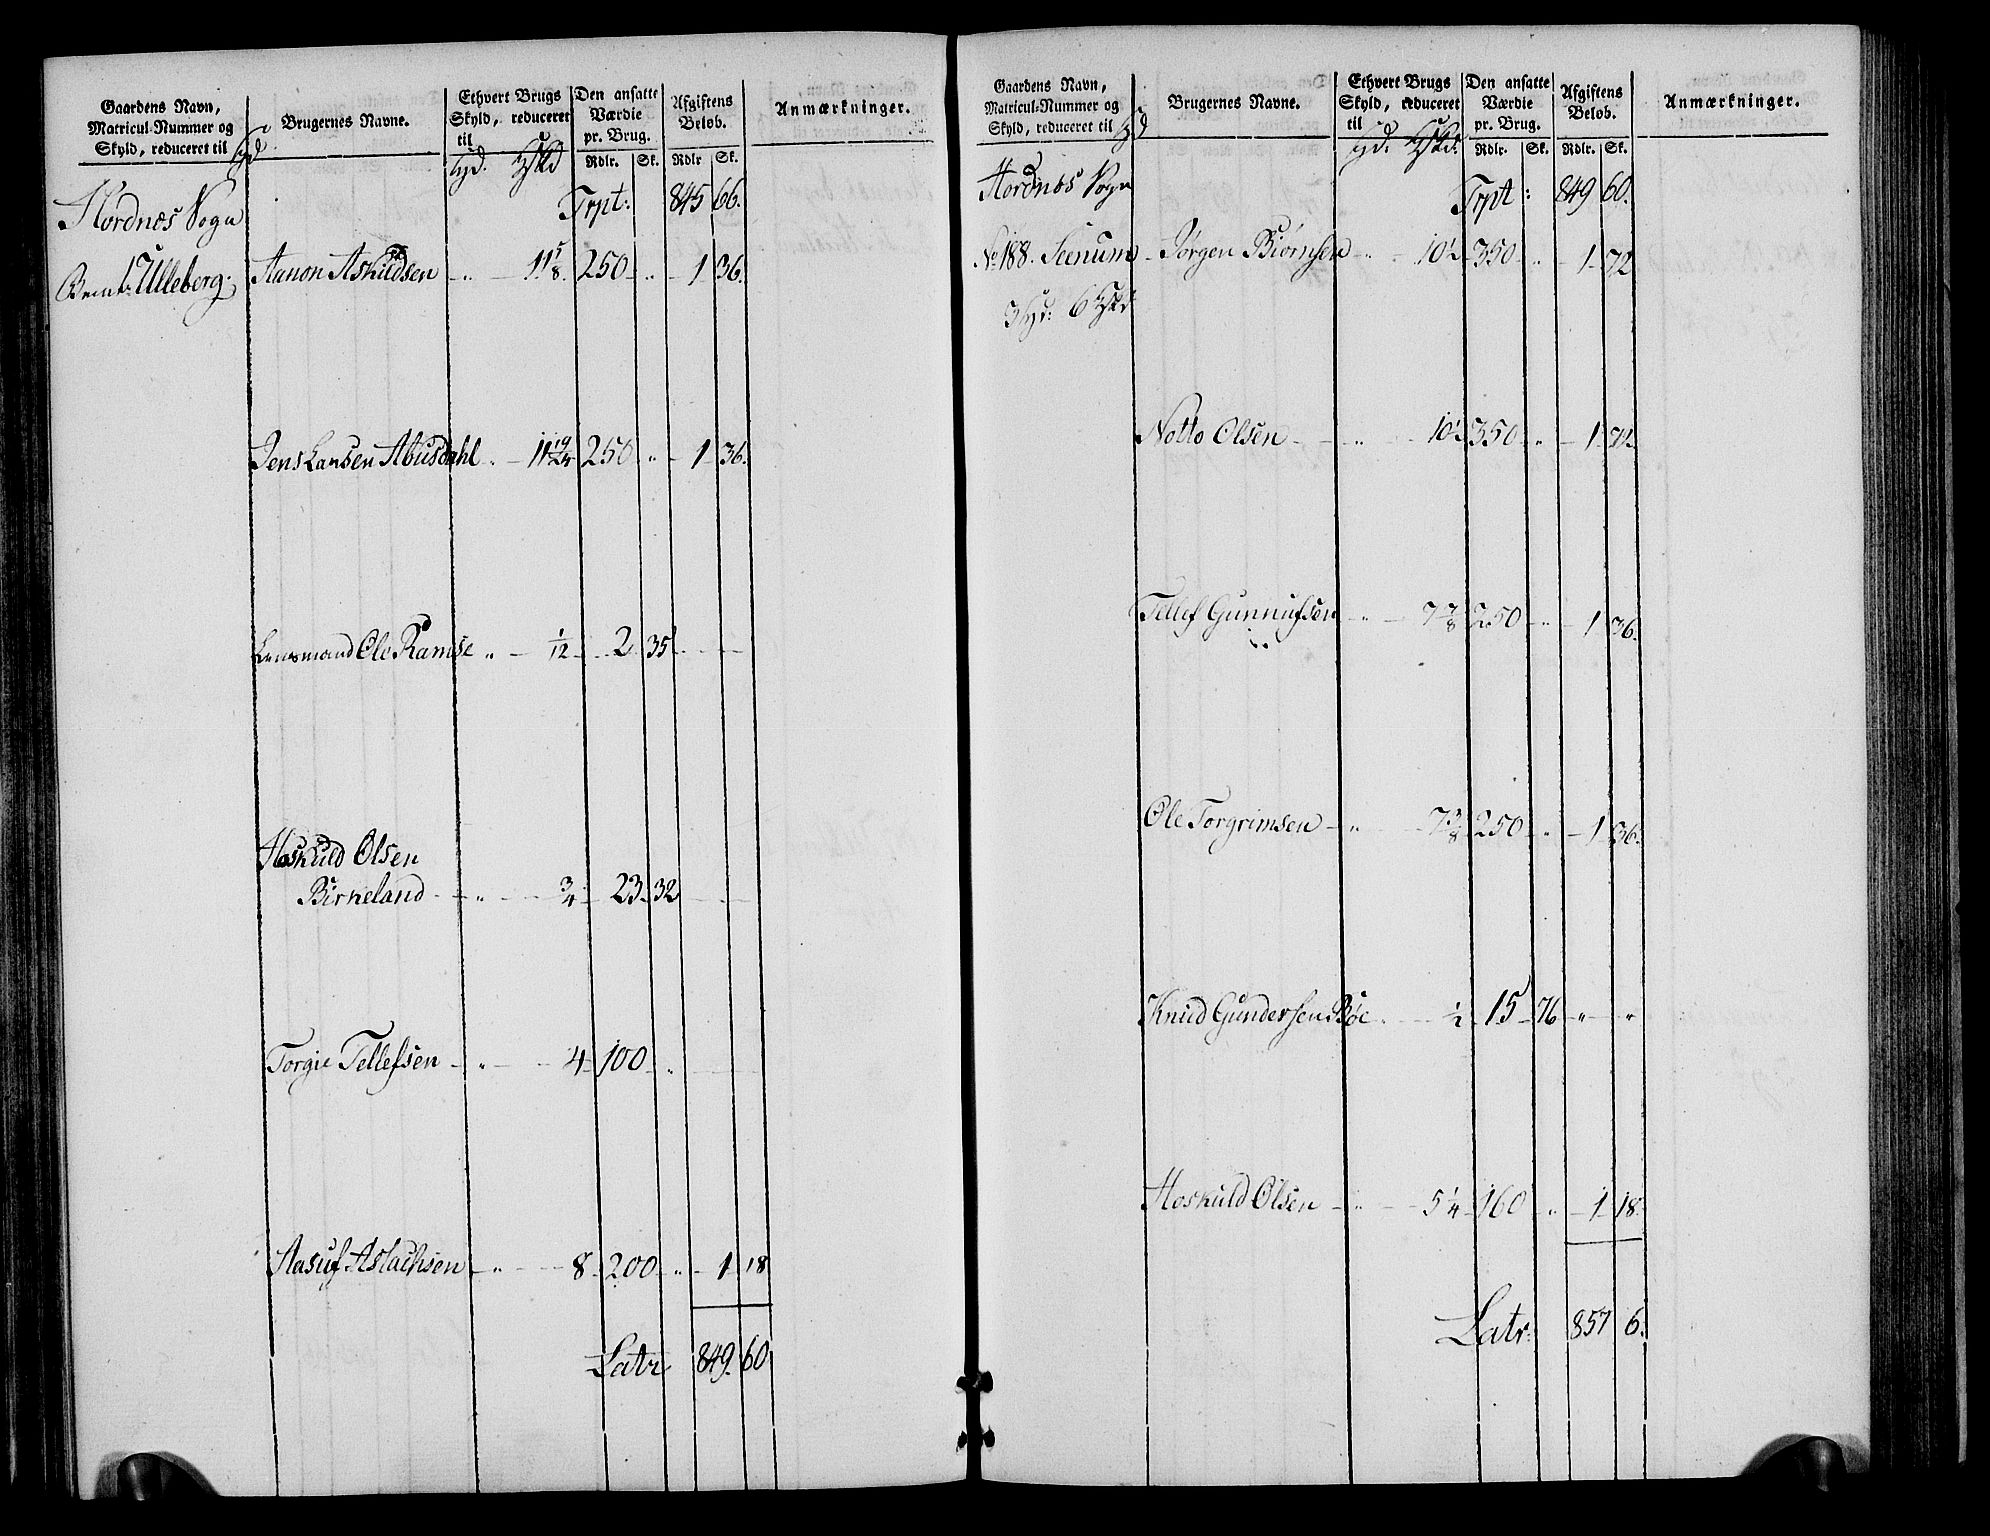 Gaardens Navn,
Matricul-Nummer og
Skyld, reduceret til
Brugernes Navne.
Ethvert Brugs
Skyld, reduceret
til
Den ansatte
Værdie
pr. Brug.
Rdlr. Sk.
Afgiftens
Beløb.
Rdlr Sk.
Anmærkninger.
Hordnæs Sogn
Trpt: 845 66.
Ulleberg. Aanon Askildsen " 11 5/8. 250 " 1 36.
Jens Larsen Abusdahl " 11 19/24 250 " 1 36.
Lensmand Ole Ramse " 1/12 2 35
Hoskuld Olsen
Birkeland " 3/4 23 32
Torgie Tellefsen " 4 100 "
Aasuf Aslachsen " 8 200 " 1 18
Latr 849. 60
Gaardens Navn,
Matricul-Nummer og
Skyld, reduceret til
Brugernes Navne.
Ethvert Brugs
Skyld, reduceret
til
Den ansatte
Værdie
pr. Brug.
Rdlr. Sk.
Afgiftens
Beløb.
Rdlr. Sk.
Anmærkninger.
Hordnæs Sogn
Trpt: 849 60.
No 188. Jørgen Biørnsen " 10 1/2 350 " 1 72
Notto Olsen " 10 1/2 350 " 1 72.
Tellef Gunnufsen " 7 7/8 250 " 1 36.
Ole Torgrimsen " 7 3/8 250 " 1 36.
Knud Gundersen Bøe " 1/2 15 76 " "
Hoskuld Olsen " 5 1/4 160 " 1 18
Latr: 857 6.